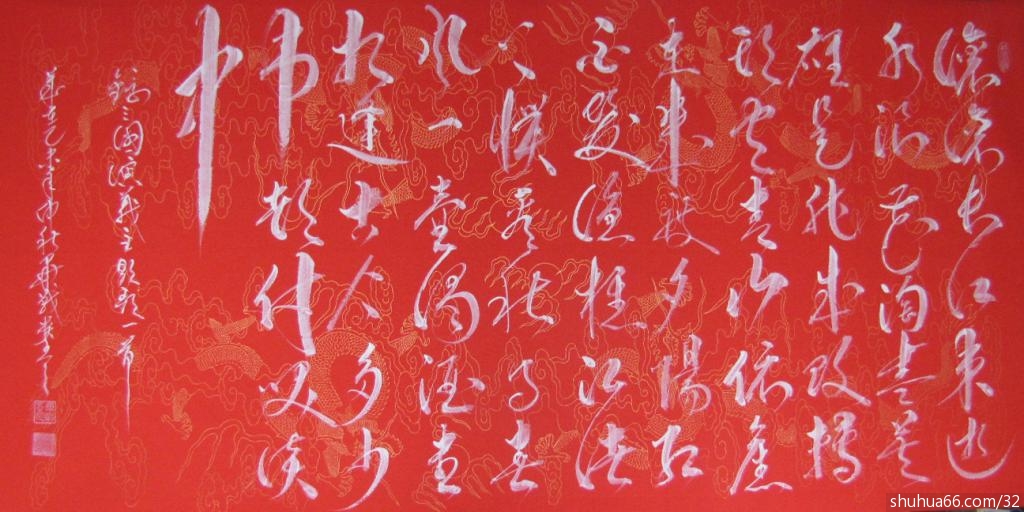 滚滚长江东逝
水浪花淘尽英
雄是非成败转
头空青山依旧
在几度夕阳红
白发渔樵江渚
上惯看秋月春
风一壶浊酒喜
相逢古今多少
事都付笑谈
中
录三国演义主题歌一首
岁在
shuhua66.com/32